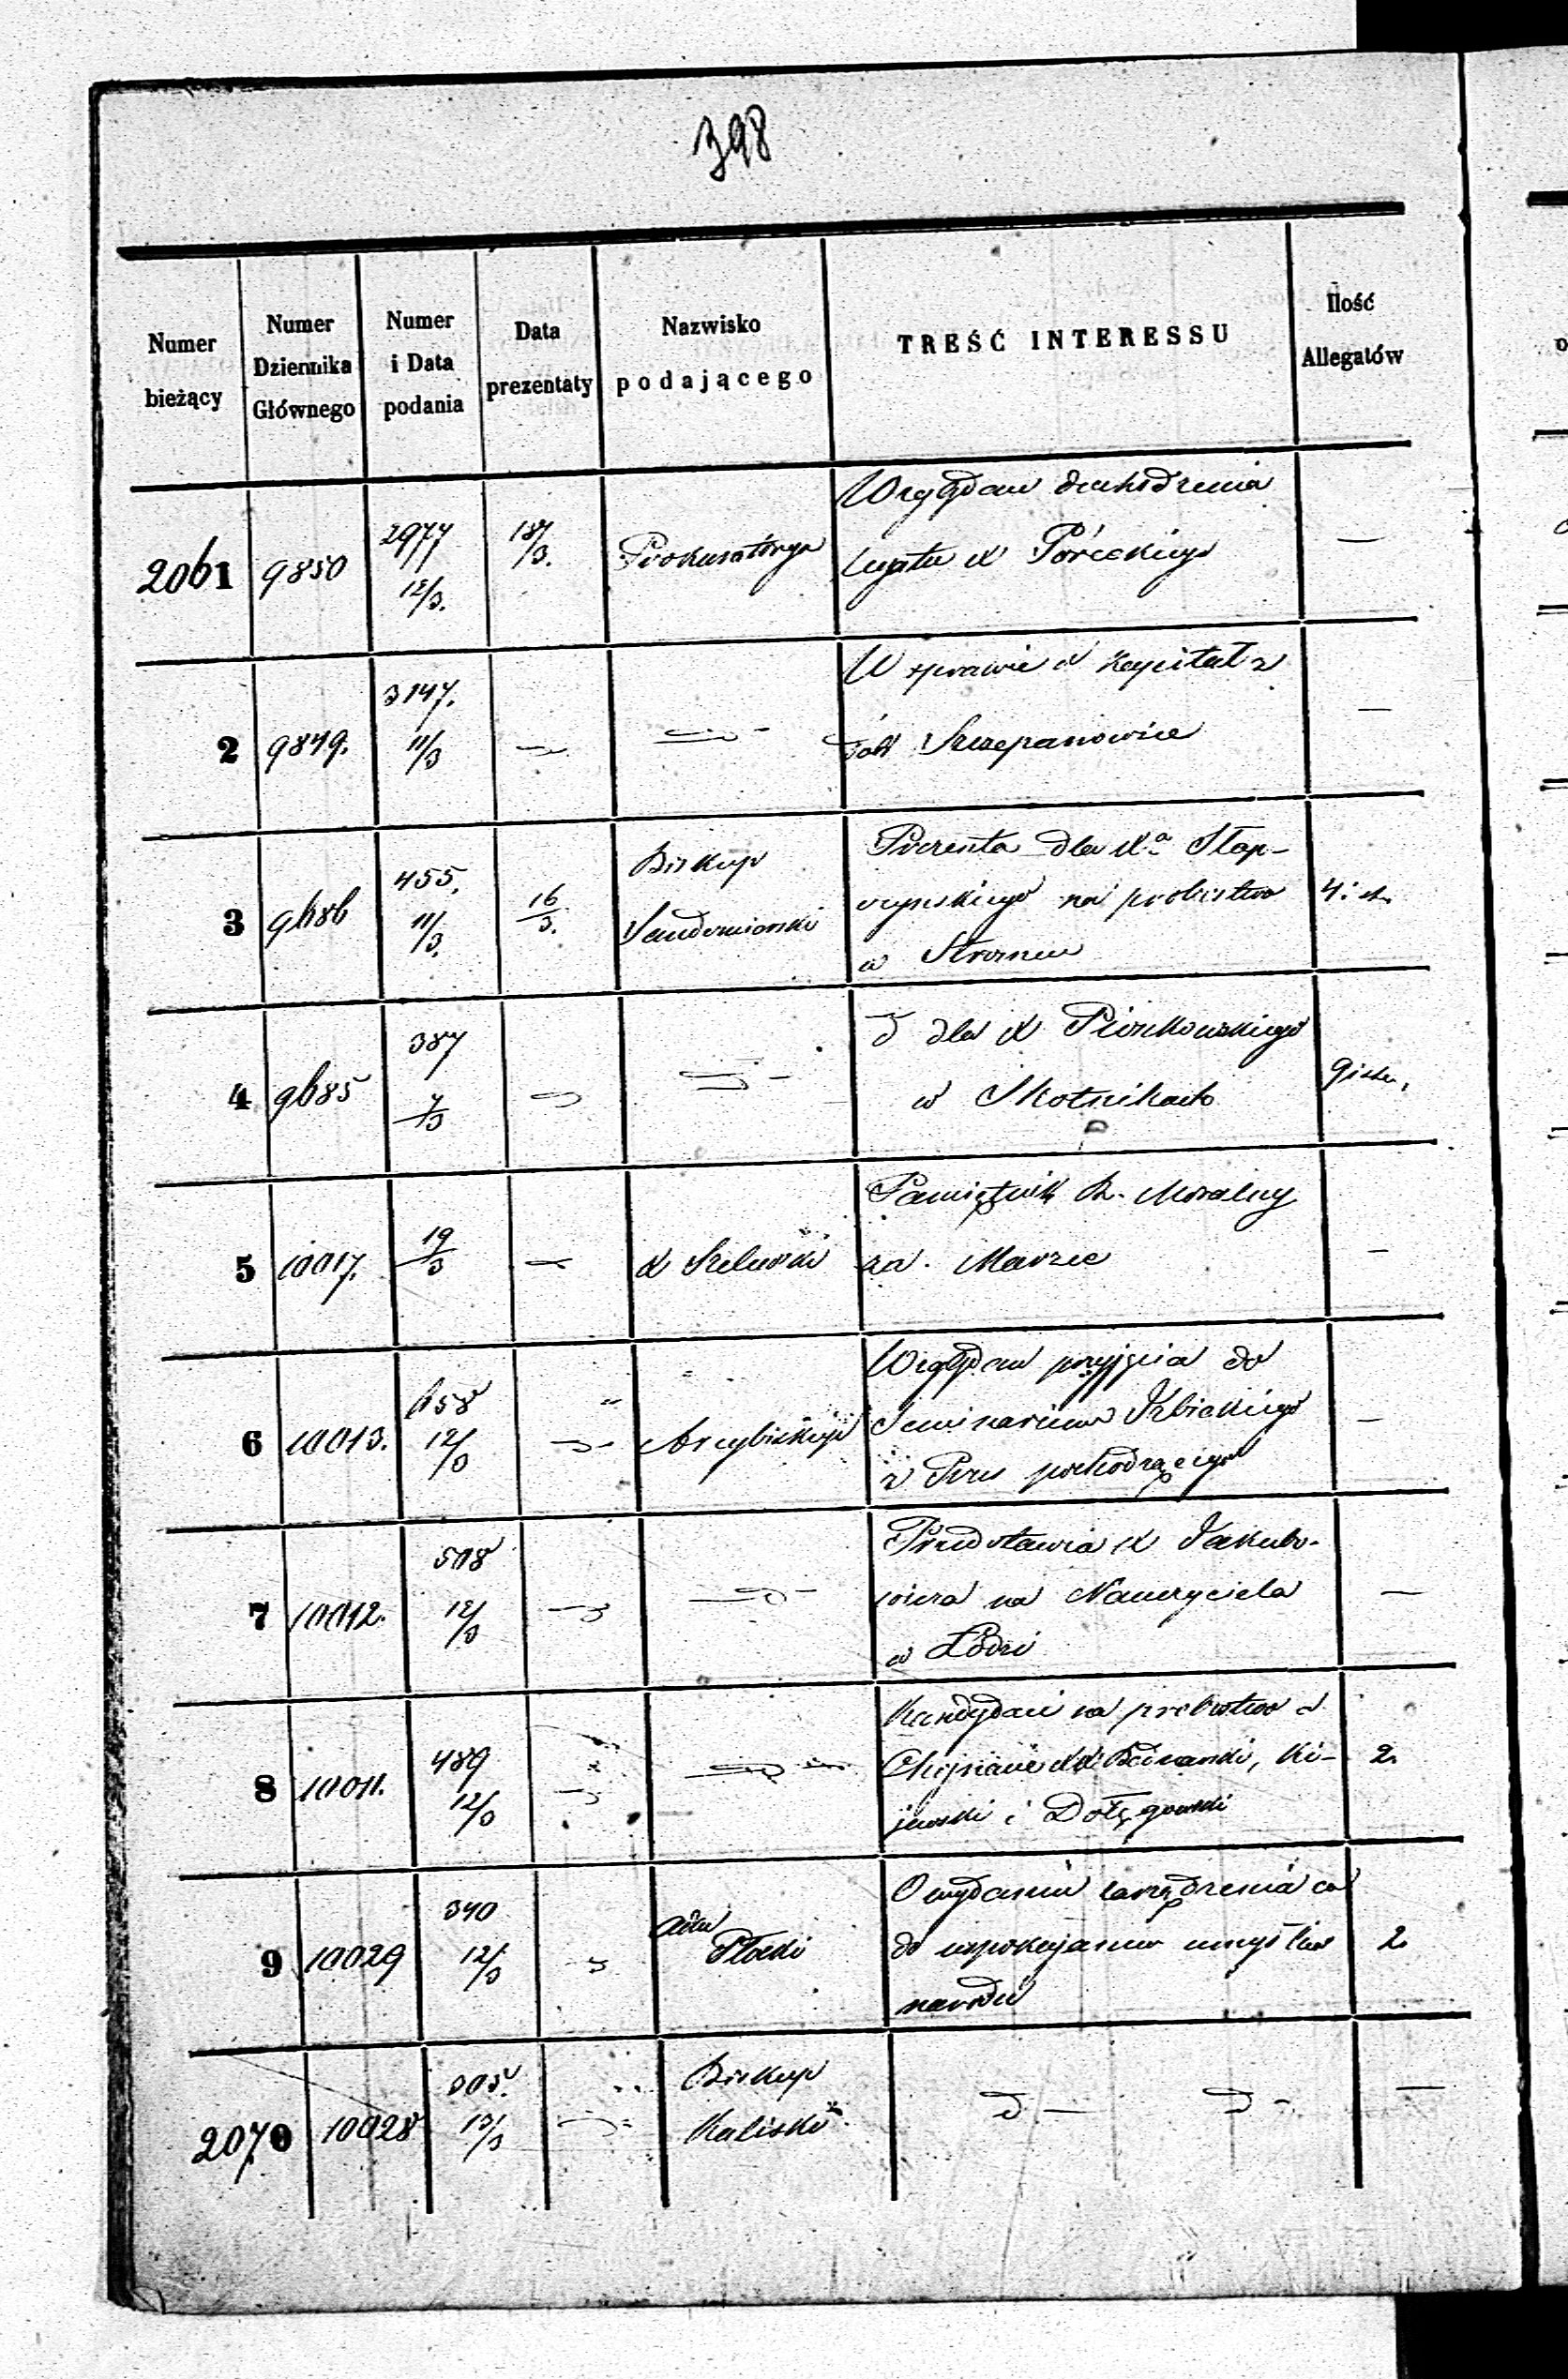 398
Numer bieżący
Numer Dziennika Głównego
Numer i Data podania
Data prezentaty
Nazwisko podającego
TREŚĆ INTERESSU
Ilość Allegatów
2061 9850 2977 12/3. 18/3. Prokuratorya
Względem dochodzenia
legatu X Poreckiego
—
2 9849. 3147. 11/3
W sprawie o kapitał z
dóbr Szczepanowice
—
3 9686 455. 11/3. 16/3. Biskup Sandomierski
Prezenta dla Xa Stop-
czyńskiego na probostwo
w Stromcu
4
4 9685 387 7/3
dla X Pionkowskiego
w Skotnikach
9
5 10017. 19/3 X Szelewski
Pamiętnik R. Moralny
za Marzec
—
6 10013. 658 12/3 Arcybiskup
Względem przyjęcia do
Seminarium Izbickiego
z Prus pochodzącego
—
7 10012. 508 12/3
Przedstawia X Jakubo-
wicza na Nauczyciela
w Łodzi
—
8 10011. 489 12/3
Kandydaci na probostwo w
Chojnacie XX Ki-
jewski i Dołęgowski
2
9 10029 340 12/3 Adm Płocki
O wydaniu zarządzenia co
do uspokojenia umysłów
narodu
2
2070 10028 305. 13/3 Biskup Kaliski
—